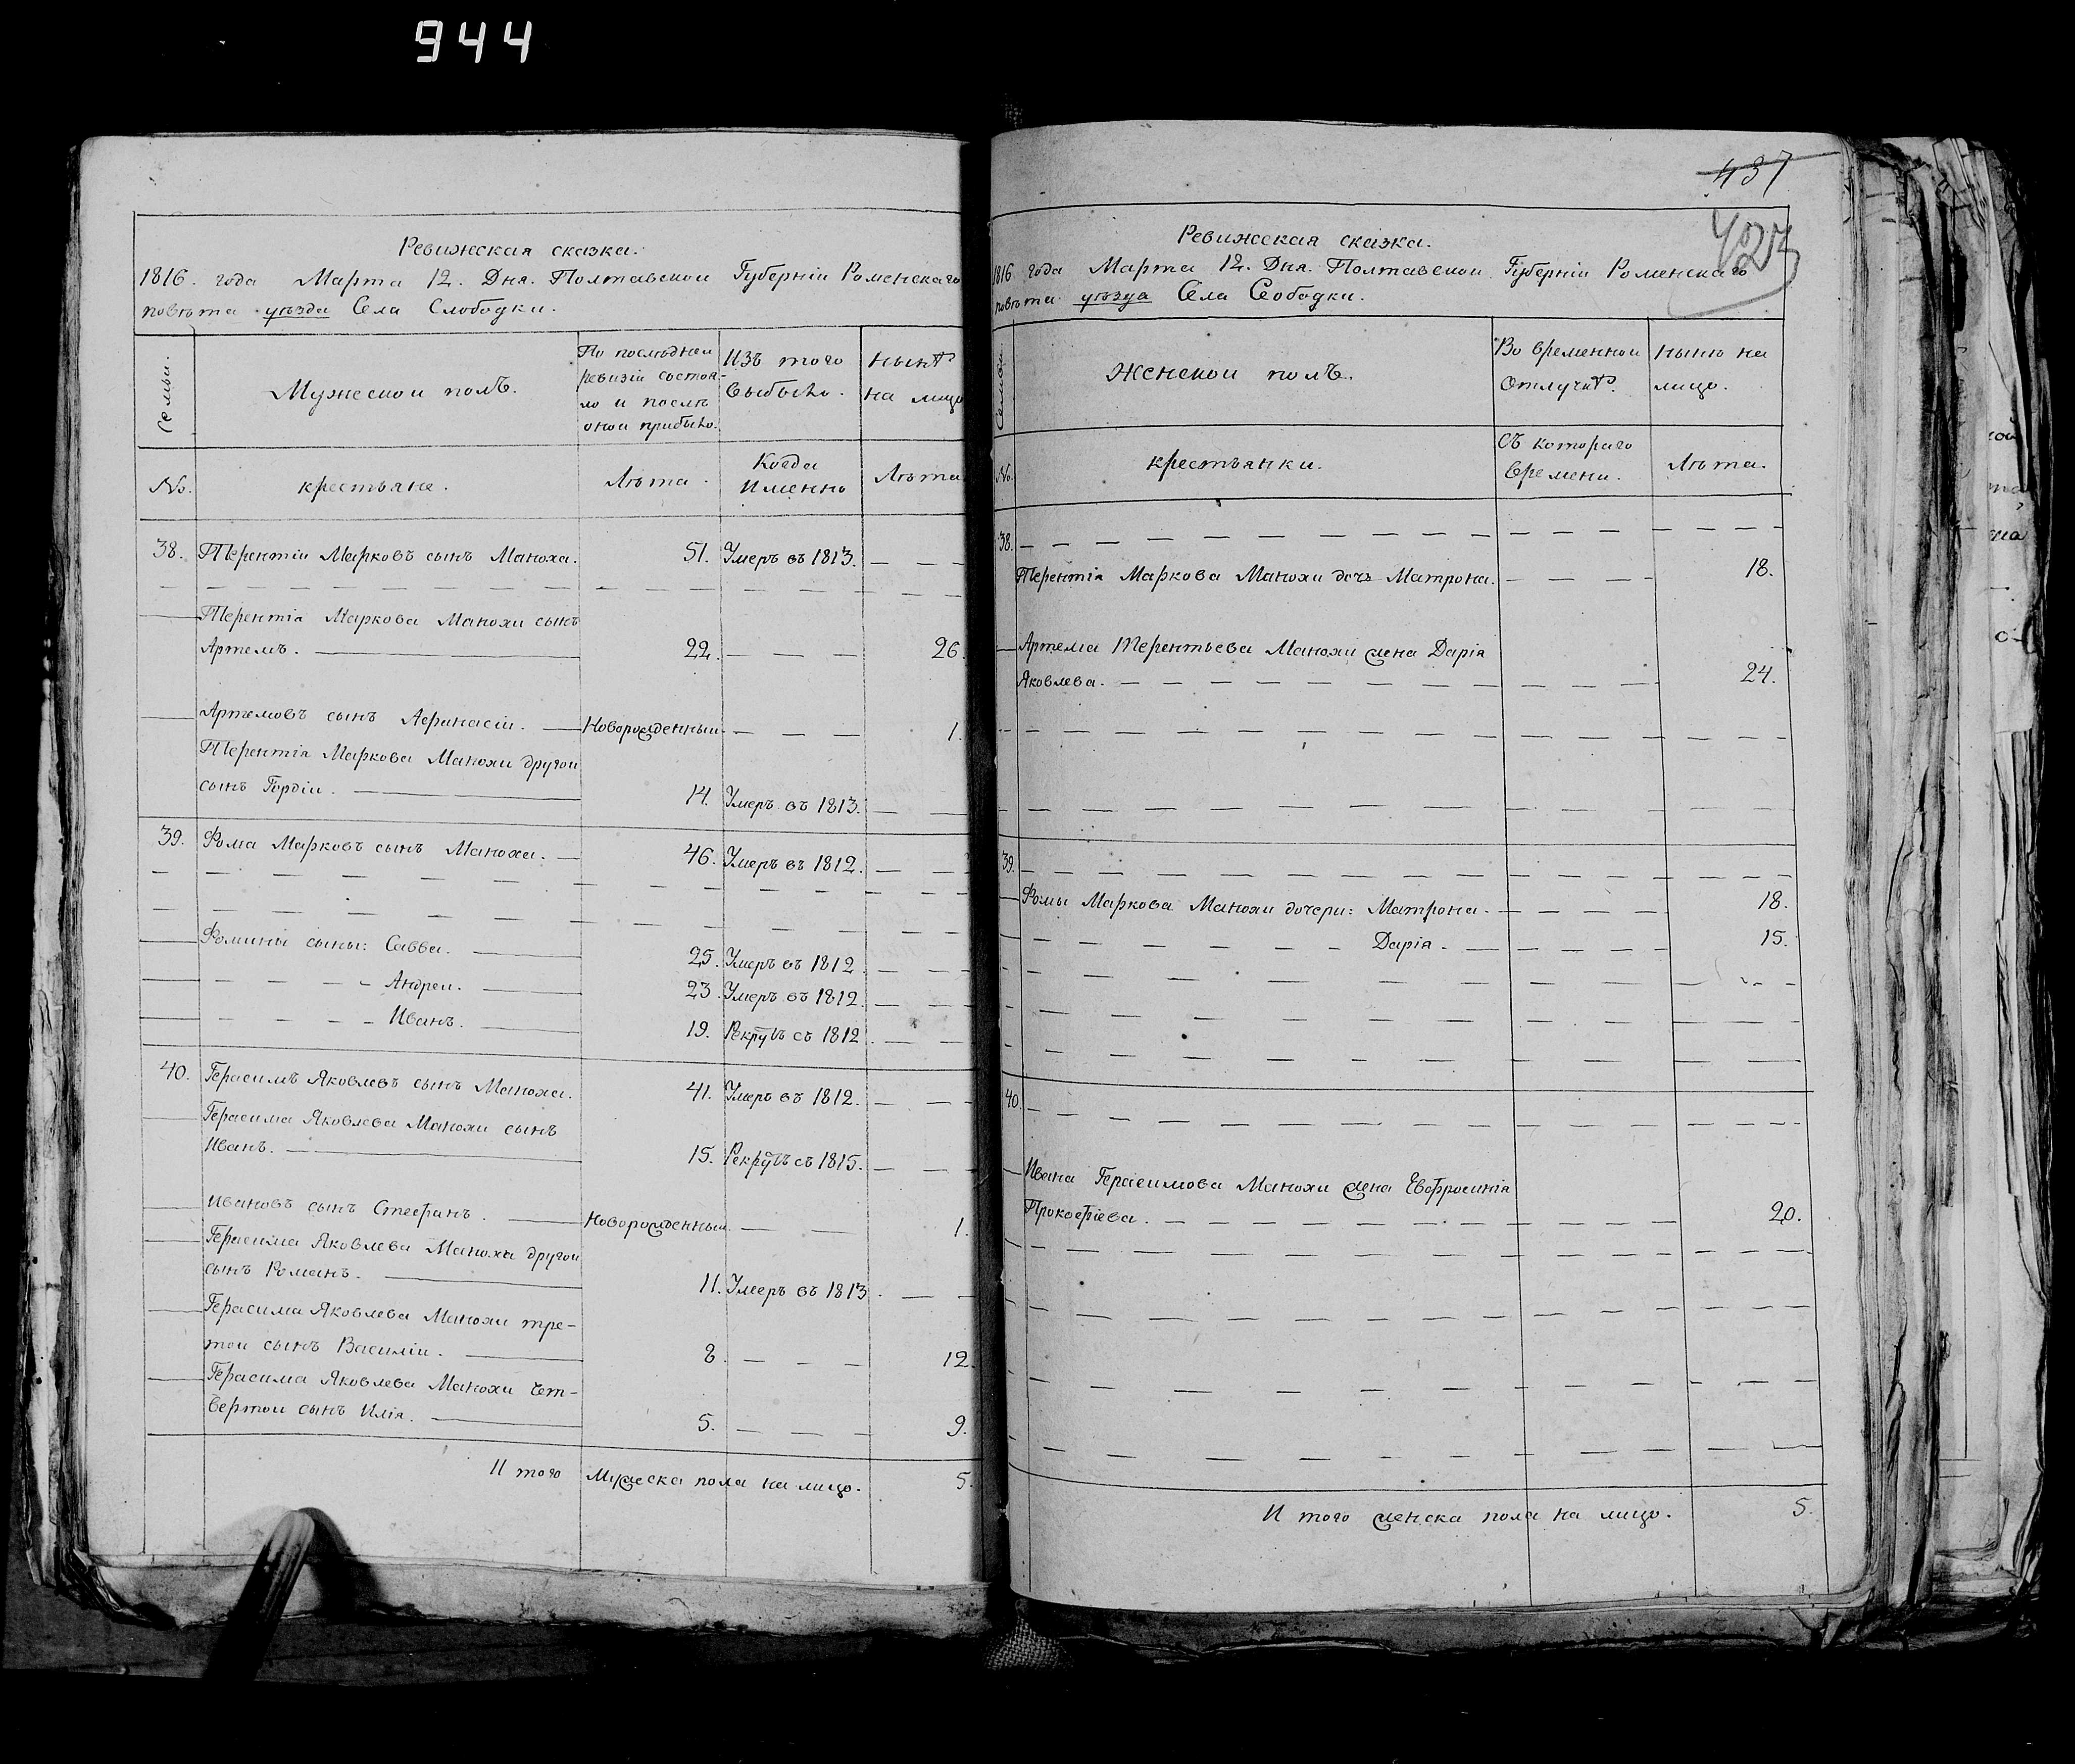 944
Ревижская сказка.
1816. года Марта 12. Дня. Полтавскои Губерніи Роменскаго
повѣта уѣзда Села Слободки.
Семьи.
Мужескои полъ.
По послѣднеи
ревизіи состоя-
ло и послѣ
онои прибыло.
Изъ того
выбыло.
нынѣ
на лицо
№.
крестьяне.
Лѣта.
Когда
Именно
Лѣта
38. Терентіи Марковъ сынъ Маноха. 51. Умеръ въ 1813.
Терентія Маркова Манохи сынъ
Артемъ. 22. 26.
Артемовъ сынъ Афанасіи. Новорожденныи. 1.
Терентія Маркова Манохи другои
сынъ Гордіи. 14. Умеръ въ 1813.
39. Фома Марковъ сынъ Маноха. 46. Умеръ въ 1812.
Фомины сыны: Савва. 25. Умеръ въ 1812.
Андреи. 23. Умеръ въ 1812.
Иванъ. 19. Рекрутъ съ 1812.
40. Герасимъ Яковлевъ сынъ Маноха. 41. Умеръ въ 1812.
Герасима Яковлева Манохи сынъ
Иванъ. 15. Рекрутъ съ 1815.
Ивановъ сынъ Стефанъ. Новорожденныи. 1.
Герасима Яковлева Манохи другои
сынъ Романъ. 11. Умеръ въ 1813.
Герасима Яковлева Манохи тре-
тои сынъ Василіи. 8. 12.
Герасима Яковлева Манохи чет-
вертои сынъ Илія. 5. 9.
И того Мужеска пола на лицо. 5.
437
423
Ревижская сказка.
1816 года Марта 12. Дня. Полтавскои Губерніи Роменскаго
повѣта уѣзда Села Слободки.
Семьи.
Женскои полъ.
Во временнои
Отлучкѣ.
нынѣ на
лицо.
№.
крестьянки.
Съ котораго
времени.
Лѣта.
38.
Терентія Маркова Манохи дочь Матрона. 18.
Артема Терентьева Манохи жена Дарія
Яковлева. 24.
39.
Фомы Маркова Манохи дочери: Матрона. 18.
Дарія. 15.
40.
Ивана Герасимова Манохи жена Евфросинія
Прокофіева. 20.
И того женска пола на лицо. 5.